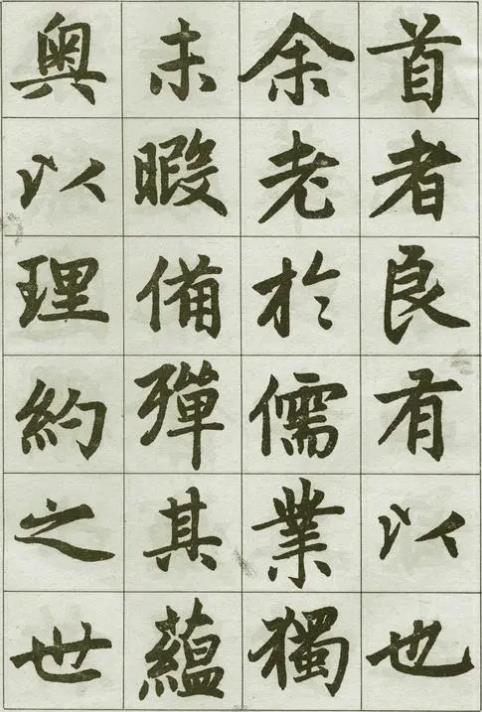 首者良有以也
余老於儒業獨
未暇備彈其蘊
奧以理約之世